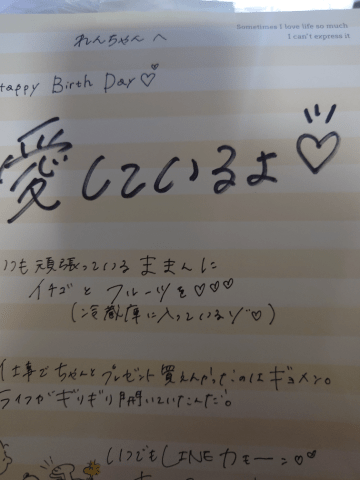 Sometimes I love life so much
I can't express it
れんちゃんへ
Happy Birth Day♡
愛しているよ♡
いつも頑張っているままんに
イチゴとフルーツを♡♡♡
(冷蔵庫に入っているゾ♡)
仕事でちゃんとプレゼント買えんかったのはギョメン。
ライフがギリギリ開いていたんだ。
いつでもLINEカモーン♡♡